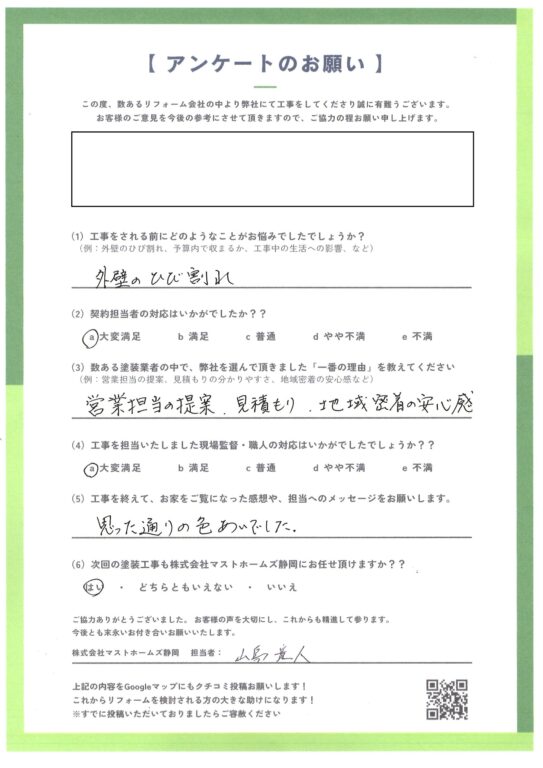 【 アンケートのお願い 】
この度、数あるリフォーム会社の中より弊社にて工事をしてくださり誠に有難うございます。
お客様のご意見を今後の参考にさせて頂きますので、ご協力の程お願い申し上げます。
(1) 工事をされる前にどのようなことがお悩みでしたでしょうか?
(例:外壁のひび割れ、予算内で収まるか、工事中の生活への影響、など)
外壁のひび割れ
(2) 契約担当者の対応はいかがでしたか??
a 大変満足 b 満足 c 普通 d やや不満 e 不満
(3) 数ある塗装業者の中で、弊社を選んで頂きました「一番の理由」を教えてください
(例:営業担当の提案、見積もりの分かりやすさ、地域密着の安心感など)
営業担当の提案、見積もり、地域密着の安心感
(4) 工事を担当いたしました現場監督・職人の対応はいかがでしたでしょうか??
a 大変満足 b 満足 c 普通 d やや不満 e 不満
(5) 工事を終えて、お家をご覧になった感想や、担当へのメッセージをお願いします。
思った通りの色あいでした。
(6) 次回の塗装工事も株式会社マストホームズ静岡にお任せ頂けますか??
はい ・ どちらともいえない ・ いいえ
ご協力ありがとうございました。お客様の声を大切にし、これからも精進して参ります。
今後とも末永いお付き合いお願いいたします。
株式会社マストホームズ静岡 担当者:
上記の内容をGoogleマップにもクチコミ投稿お願いします!
これからリフォームを検討される方の大きな助けになります!
※すでに投稿いただいておりましたらご容赦ください